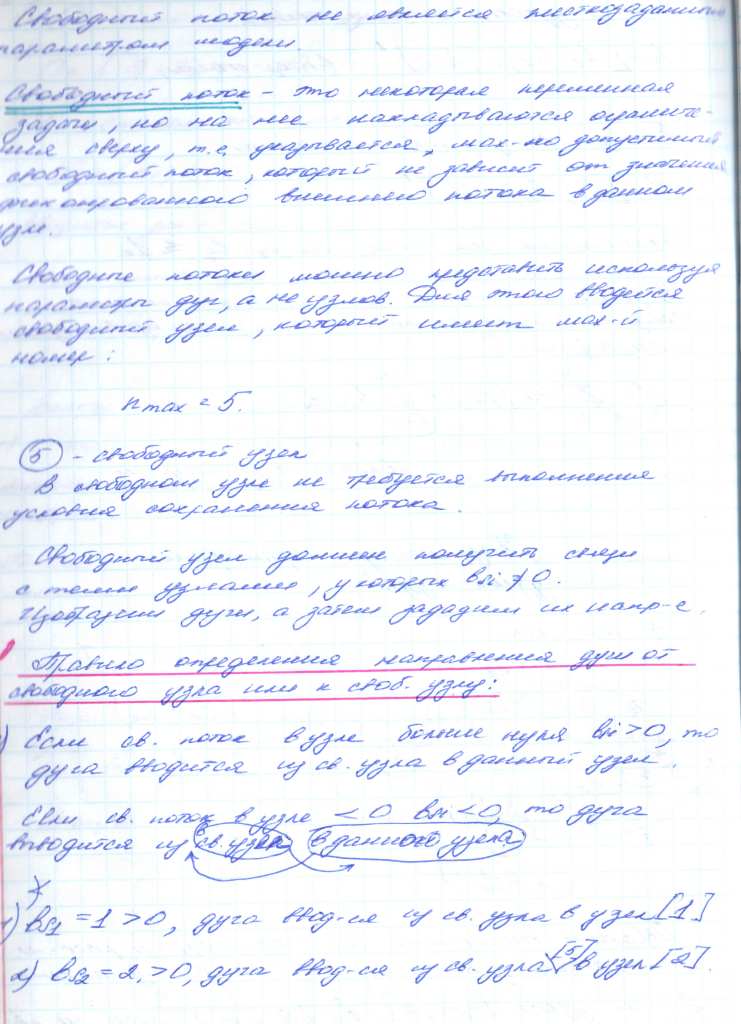 Свободный поток не является жесткозаданным
параметром модели.
Свободный поток – это некоторая переменная
задачи, но на нее накладываются ограниче-
ния сверху, т.е. указывается, мах-но допустимый
свободный поток, который не зависит от значения
фиксированного внешнего потока в данном
узле.
Свободные потоки можно представить используя
параметры дуг, а не узлов. Для этого вводится
свободный узел, который имеет мах-й
номер:
nmax = 5.
5 - свободный узел
В свободном узле не требуется выполнения
условия сохранения потока.
Свободный узел должен получить связи
с теми узлами, у которых bsi ≠ 0.
Изобразим дуги, а затем зададим их напр-е.
Правило определения направления дуги от
свободного узла или к своб. узлу:
) Если св. поток в узле больше нуля bsi > 0, то
дуга вводится из св. узла в данный узел.
Если св. поток в узле < 0 bsi < 0, то дуга
выводится из св. узла в данного узела
1) bs1 = 1 > 0, дуга ввод-ся из св. узла в узел [1]
2) bs2 = 2 > 0, дуга ввод-ся из св. узла [5] в узел [2].